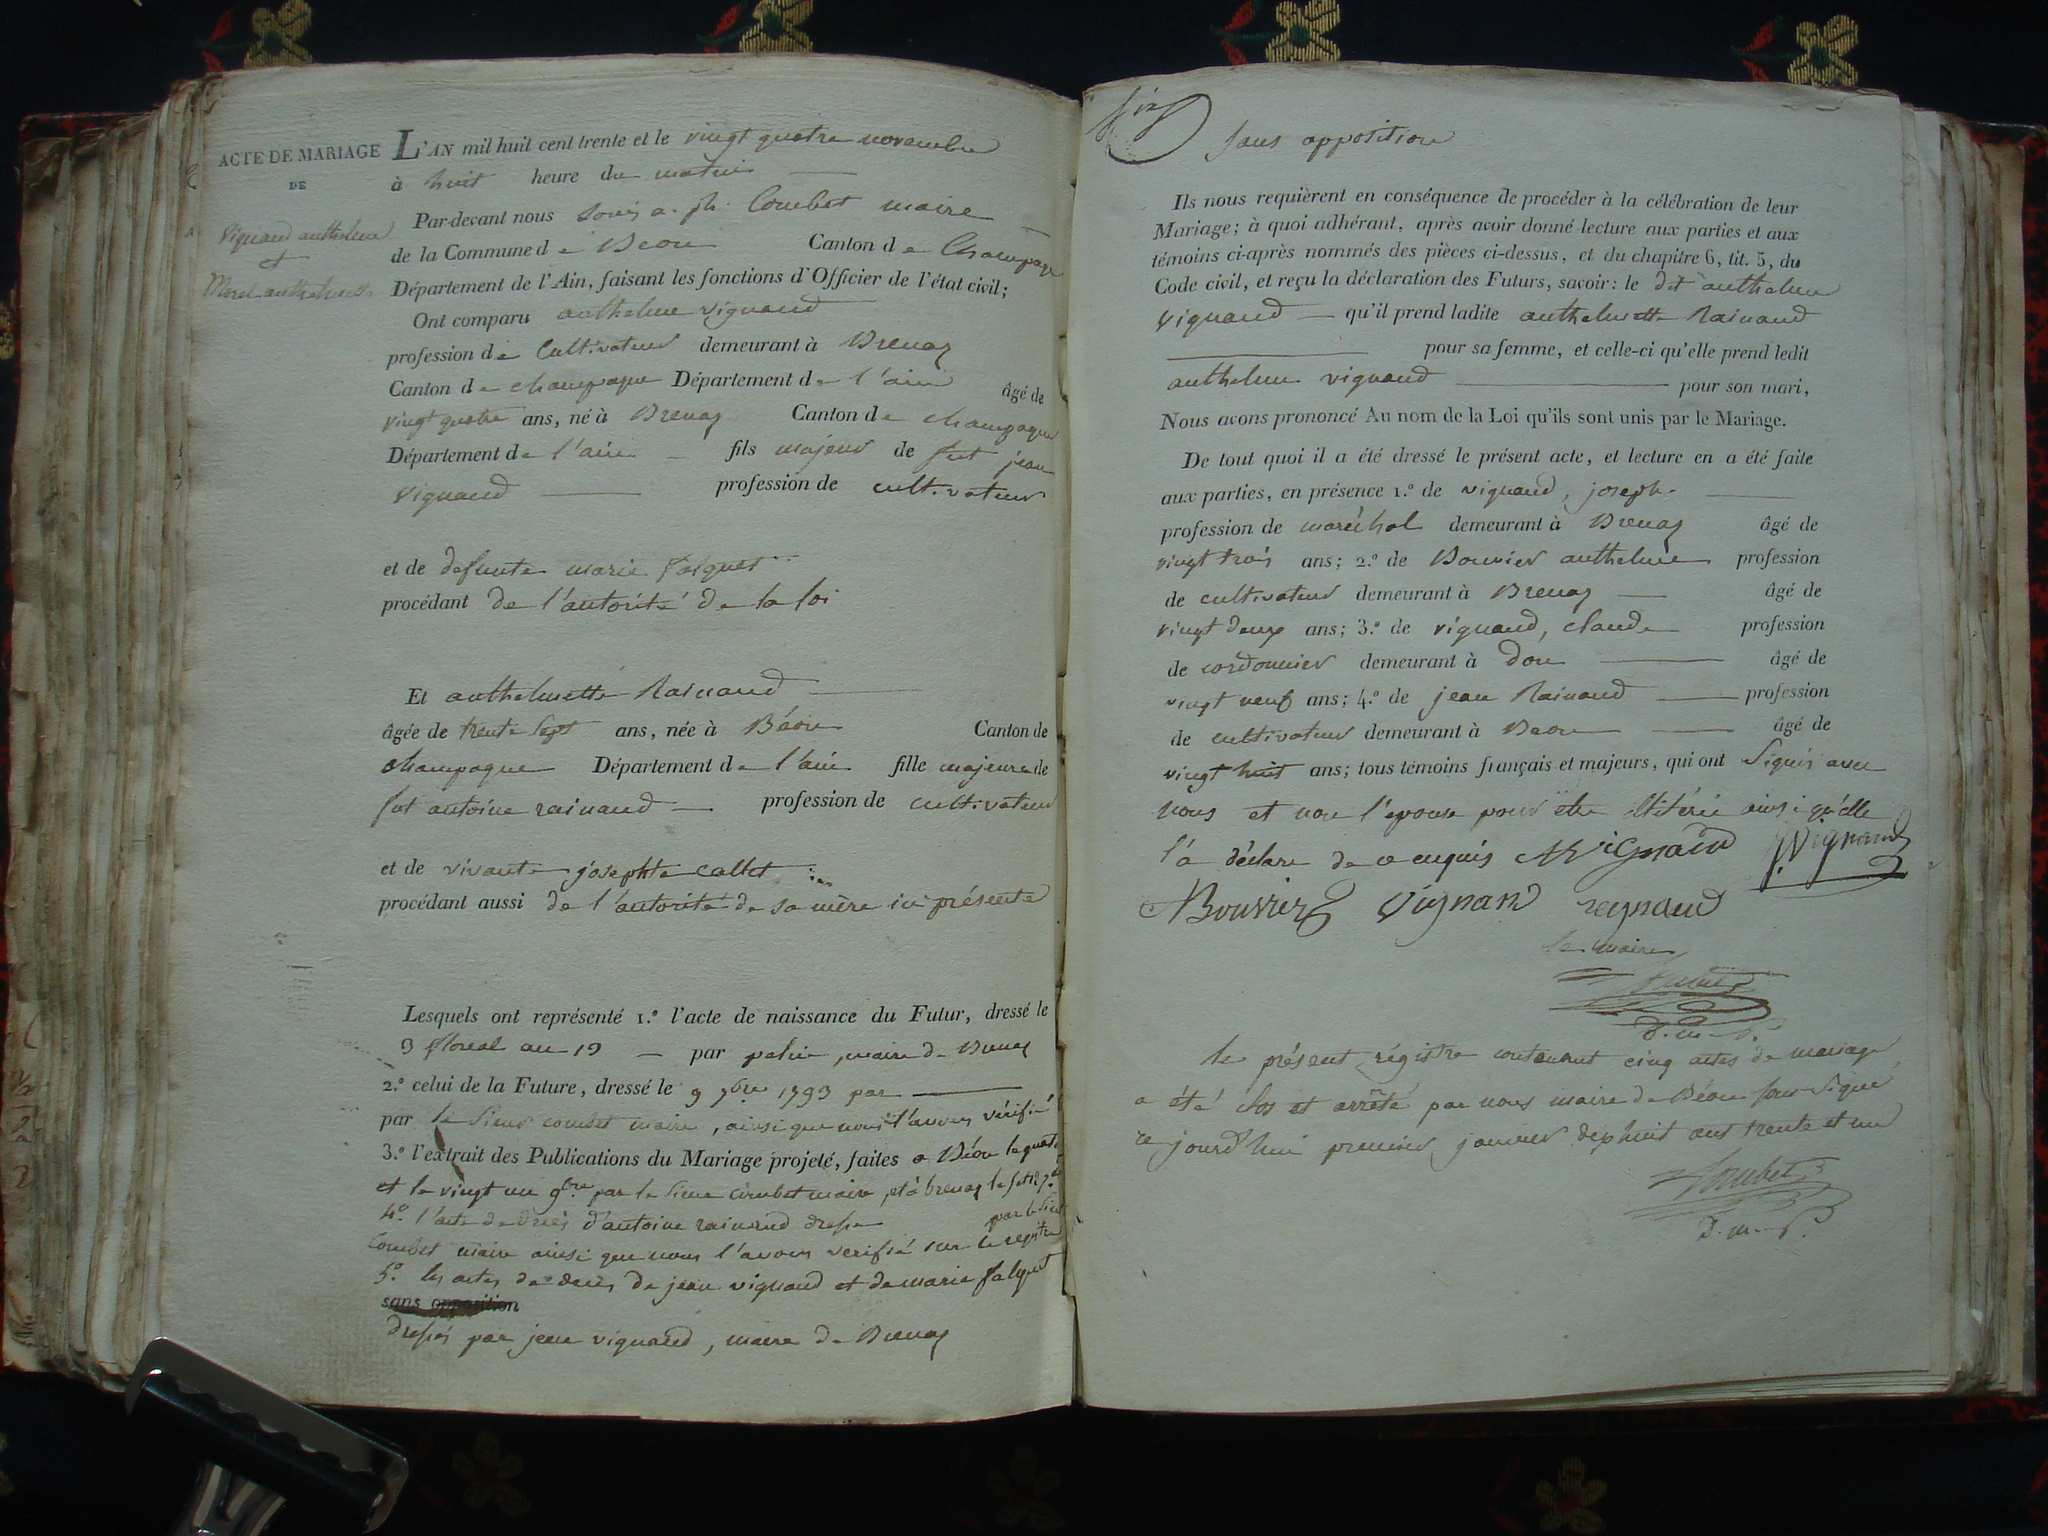 ACTE DE MARIAGE
DE
Vignaud anthelme
et
Morel anthelmette
L'AN mil huit cent trente et le vingt quatre novembre
à huit heure du matin
Par-devant nous Louis a. ph. Combet maire
de la Commune de Béon Canton de Champagne
Département de l'Ain, faisant les fonctions d'Officier de l'état civil;
Ont comparu anthelme vignaud
profession de Cultivateur demeurant à Brenaz
Canton de champagne Département de l'ain âgé de
vingt quatre ans, né à Brenaz Canton de champagne
Département de l'ain fils majeur de fut jean
vignaud profession de cultivateur
et de defunte marie
procédant de l'autorité de la loi
Et anthelmette Rainaud
âgée de trente sept ans, née à Béon Canton de
champagne Département de l'ain fille majeure de
fut antoine rainaud profession de cultivateur
et de vivante josephte callet
procédant aussi de l'autorité de sa mère ici présente
Lesquels ont représenté 1.° l'acte de naissance du Futur, dressé le
floréal an 13 par maire de Brenaz
2.° celui de la Future, dressé le 9 7bre 1793 par
par le sieur combet maire, ainsi que nous l'avons vérifié
3.° l'extrait des Publications du Mariage projeté, faites a Béon le
et le vingt un 9bre par le sieur combet maire, et à brenaz le
4° l'acte de décès d'antoine rainaud dressé par le sieur
Combet maire ainsi que nous l'avons verifié sur le registre
5° les actes de décès de jean vignaud et de marie falquet
sans opposition
dressés par jean vignaud, maire de Brenaz
Sans opposition
Ils nous requièrent en conséquence de procéder à la célébration de leur
Mariage; à quoi adhérant, après avoir donné lecture aux parties et aux
témoins ci-après nommés des pièces ci-dessus, et du chapitre 6, tit. 5, du
Code civil, et reçu la déclaration des Futurs, savoir: le dit anthelme
vignaud qu'il prend ladite anthelmette Rainaud
pour sa femme, et celle-ci qu'elle prend ledit
anthelme vignaud pour son mari,
Nous avons prononcé Au nom de la Loi qu'ils sont unis par le Mariage.
De tout quoi il a été dressé le présent acte, et lecture en a été faite
aux parties, en présence 1.° de vignaud, joseph
profession de maréchal demeurant à Brenaz âgé de
vingt trois ans; 2.° de Bouvier anthelme profession
de cultivateur demeurant à Brenaz âgé de
vingt deux ans; 3.° de vignaud, claude profession
de cordonnier demeurant à Don âgé de
vingt neuf ans; 4.° de jean Rainaud profession
de cultivateur demeurant à Béon âgé de
vingt huit ans; tous témoins français et majeurs, qui ont signés avec
nous et non l'epouse pour être illitérée ainsi qu'elle
l'a déclaré de ce enquis Vignaud Vignaud
Bouvier Vignand reynaud
le maire
Combet
d.m.p.
le présent régistre contenant cinq actes de mariage
a été clos et arrêté par nous maire de Béon sous signé
ce jourd'hui premier janvier dix huit cent trente et un
Combet
d.m.p.